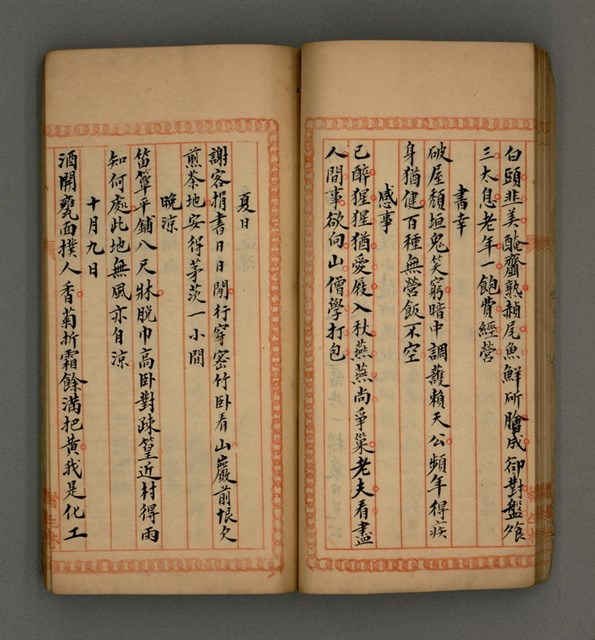 白頭韭美醃虀熟赬尾魚鮮斫膾成卻對盤飧
三太息老年一飽費經營
書幸
破屋頹垣鬼笑窮暗中調護賴天公頻年得疾
身猶健百種無營飯不空
感事
已醉猩猩猶愛屐入秋燕燕尚爭巢老夫看盡
人間事欲向山僧學打包
夏日
謝客捐書日日閒行穿密竹臥看山巖前恨欠
煎茶地安得茅茨一小間
晚涼
笛簟平鋪八尺牀脫巾高臥對疎篁近村得雨
知何處此地無風亦自涼
十月九日
酒開甕面撲人香菊折霜餘滿把黃我是化工